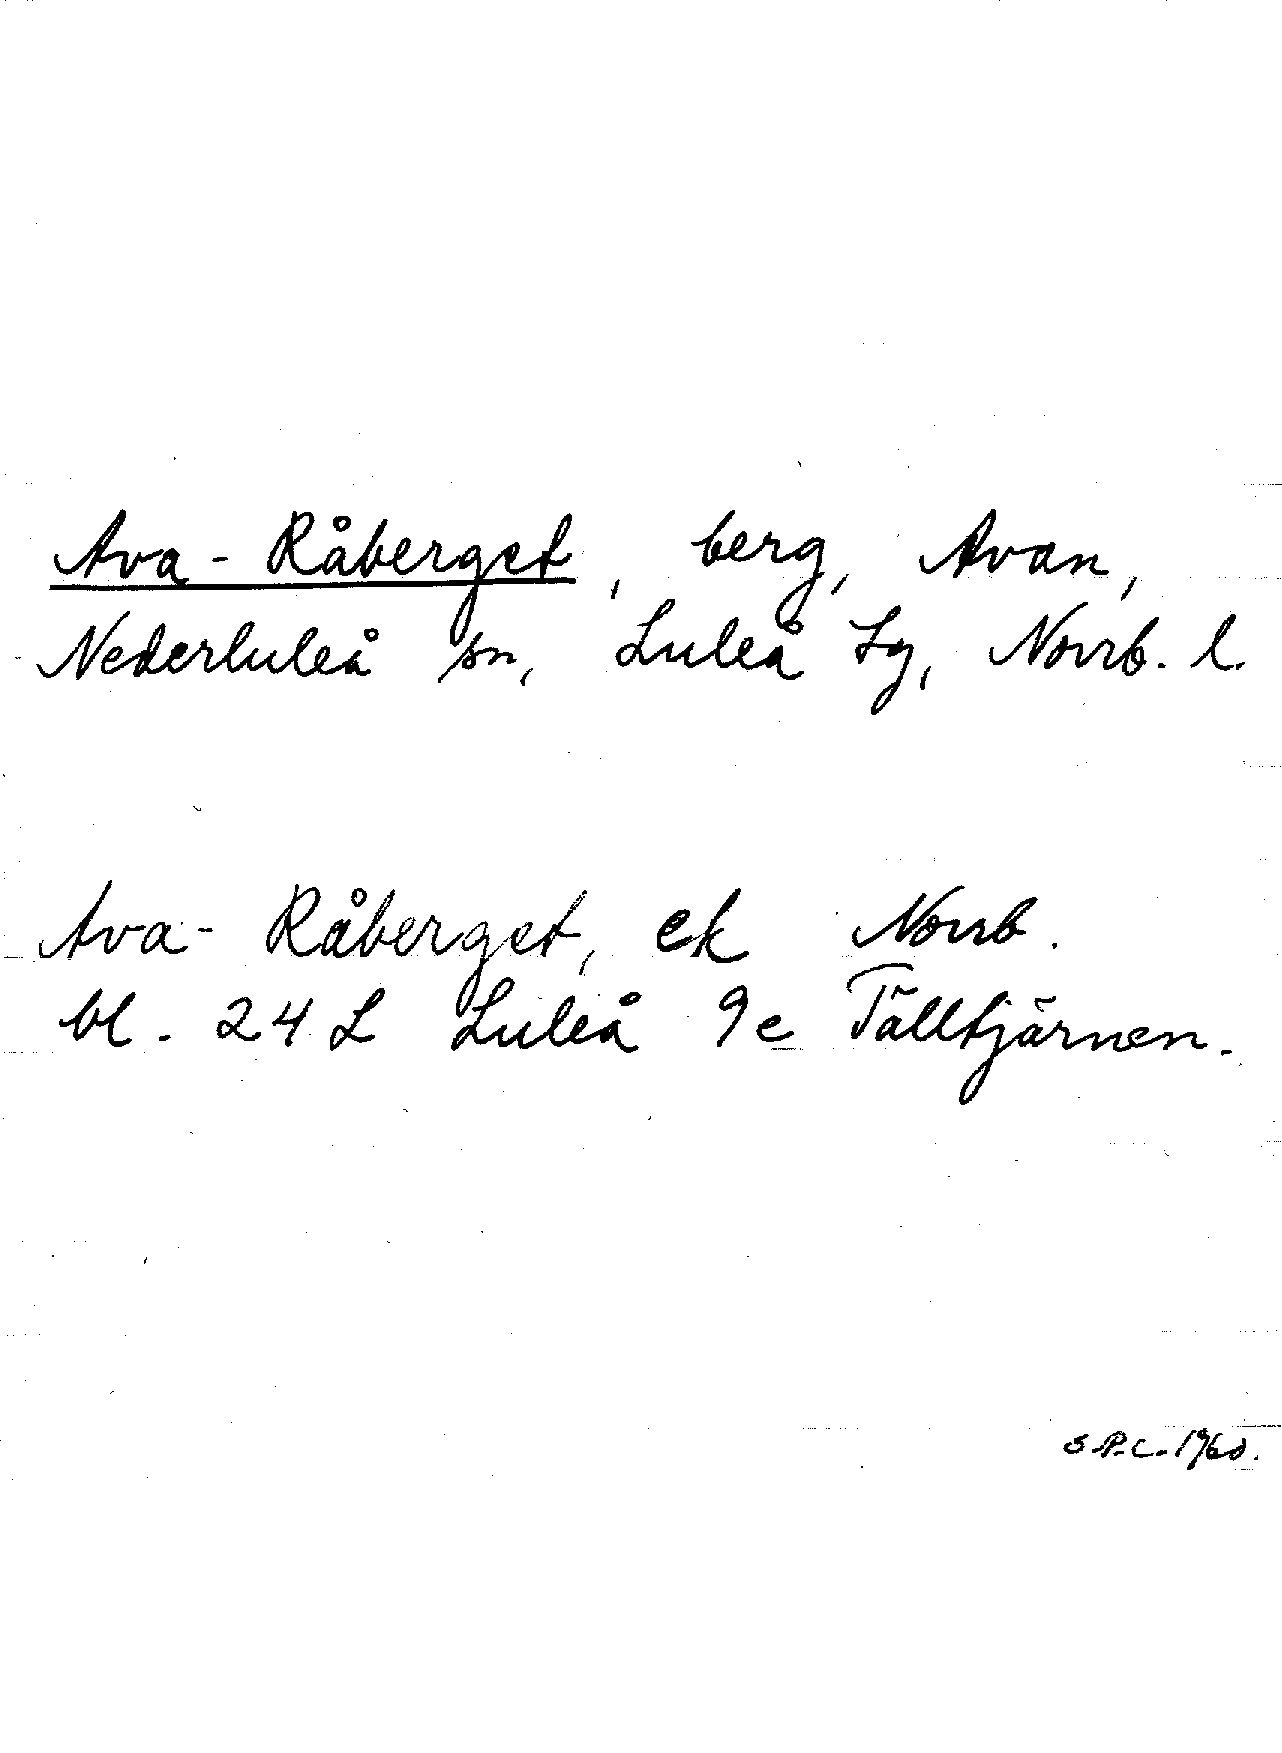 Ava-Råberget, berg, Avan,
Nederluleå sn, Luleå tg, Norrb. l.
Ava-Råberget, ek Norrb.
bl. 24 L Luleå 9e Tälltjärnen.
S.P.C. 1960.